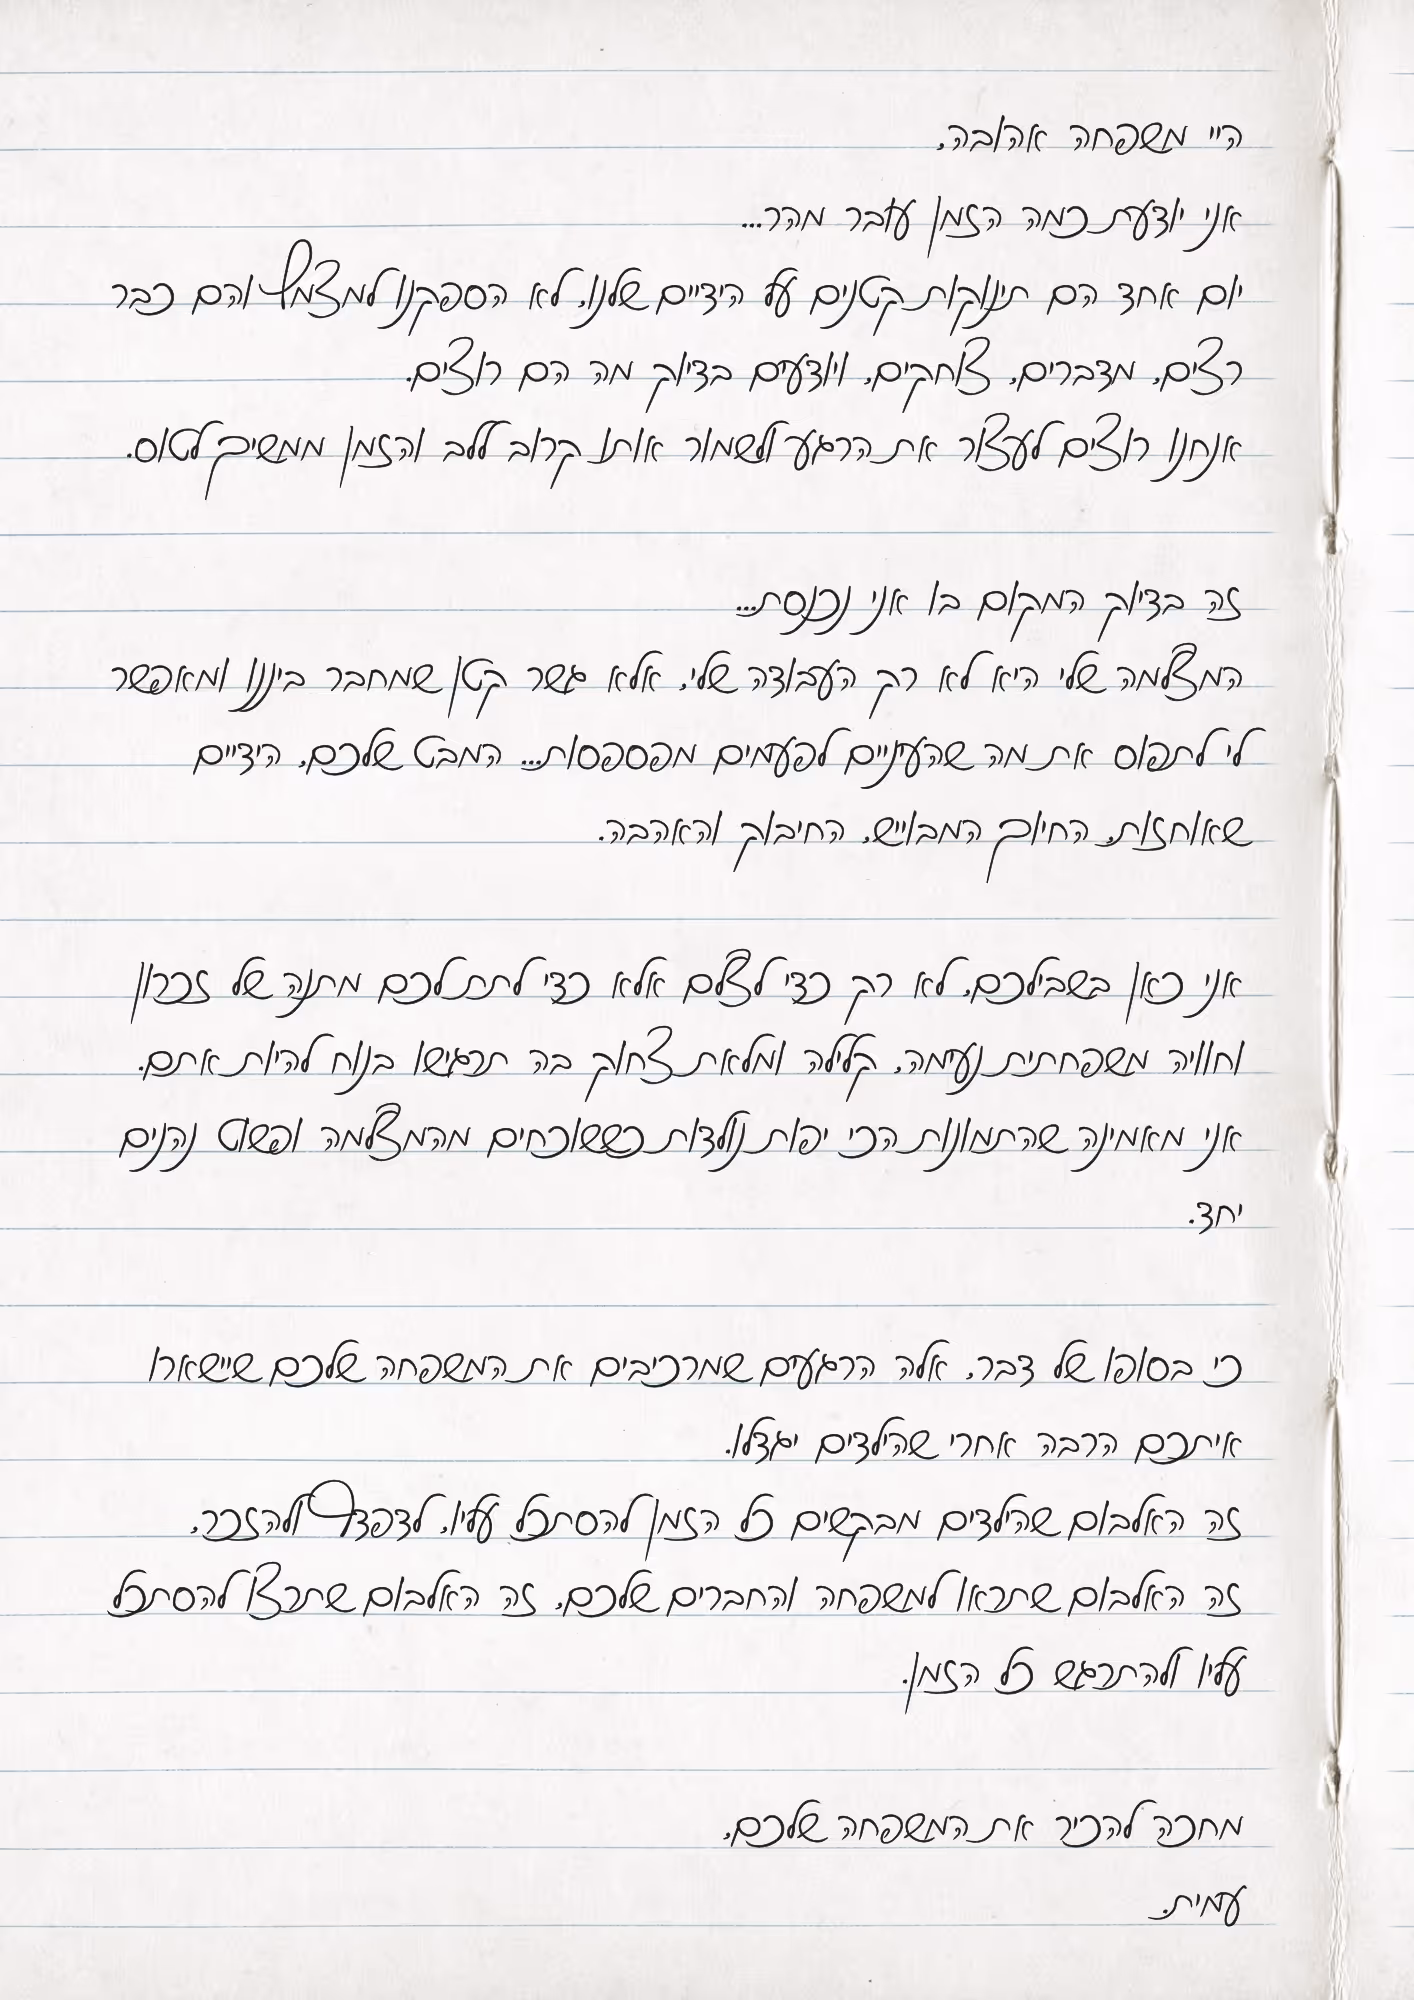 היי משפחה אהובה,
אני יודעת כמה הזמן עובר מהר...
יום אחד הם תינוקות קטנים על הידיים שלנו, לא הספקנו למצמץ והם כבר
רצים, מדברים, צוחקים, ויודעים בדיוק מה הם רוצים.
אנחנו רוצים לעצור את הרגע ולשמור אותו קרוב ללב והזמן ממשיך לטוס.
זה בדיוק המקום בו אני נכנסת...
המצלמה שלי היא לא רק העבודה שלי, אלא גשר קטן שמחבר ביננו ומאפשר
לי לתפוס את מה שהעיניים לפעמים מפספסות... המבט שלכם, הידיים
שאוחזות, החיוך המבוייש, החיבוק והאהבה.
אני כאן בשבילכם, לא רק כדי לצלם אלא כדי לתת לכם מתנה של זכרון
וחוויה משפחתית נעימה, קלילה ומלאת צחוק בה תרגישו בנוח להיות אתם.
אני מאמינה שהתמונות הכי יפות נולדות כששוכחים מהמצלמה ופשוט נהנים
יחד.
כי בסופו של דבר, אלה הרגעים שמרכיבים את המשפחה שלכם שיישארו
איתכם הרבה אחרי שהילדים יגדלו.
זה האלבום שהילדים מבקשים כל הזמן להסתכל עליו, לדפדף ולהזכר,
זה האלבום שתראו למשפחה והחברים שלכם, זה האלבום שתרצו להסתכל
עליו ולהתרגש כל הזמן.
מחכה להכיר את המשפחה שלכם,
עמית.